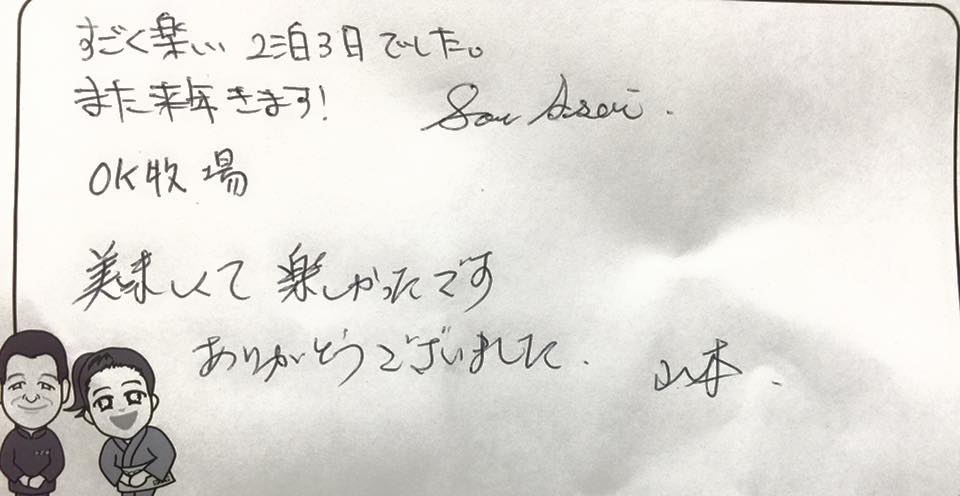 すごく楽しい 2泊3日でした。
また来年きます！
OK牧場
美味しくて 楽しかったです
ありがとうございました.
山本.